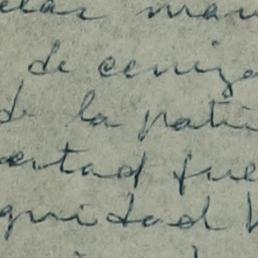 elas man
de ceniza
de la patri
ertad fue
gnidad h